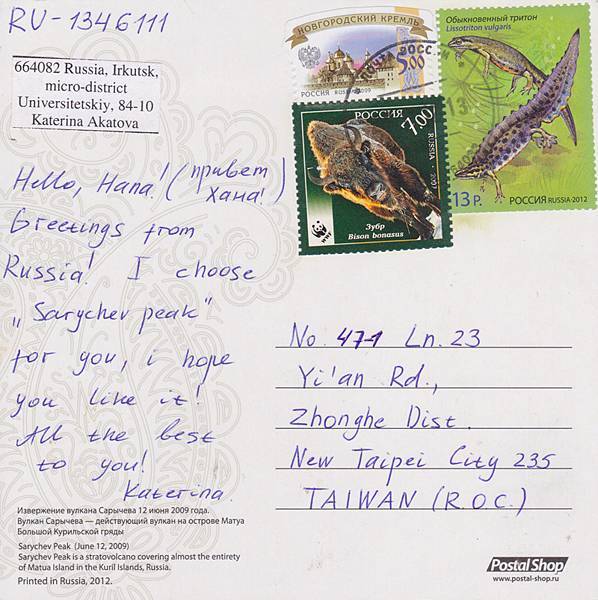 RU-1346111
664082 Russia, Irkutsk,
micro-district
Universitetskiy, 84-10
Katerina Akatova
НОВГОРОДСКИЙ КРЕМЛЬ
5.00
РОССИЯ RUSSIA•2009
Обыкновенный тритон
Lissotriton vulgaris
13 Р. РОССИЯ RUSSIA•2012
РОССИЯ
7.00
RUSSIA • 2007
Зубр
Bison bonasus
WWF
Hello, Hana! (привет
Хана!)
Greetings from
Russia! I choose
„Sarychev peak"
for you, i hope
you like it!
All the best
to you!
Katerina.
No. 471 Ln. 23
Yi'an Rd.,
Zhonghe Dist.
New Taipei City 235
TAIWAN (R.O.C.)
Извержение вулкана Сарычева 12 июня 2009 года.
Вулкан Сарычева — действующий вулкан на острове Матуа
Большой Курильской гряды
Sarychev Peak (June 12, 2009)
Sarychev Peak is a stratovolcano covering almost the entirety
of Matua Island in the Kuril Islands, Russia.
Printed in Russia, 2012.
PostalShop
www.postal-shop.ru